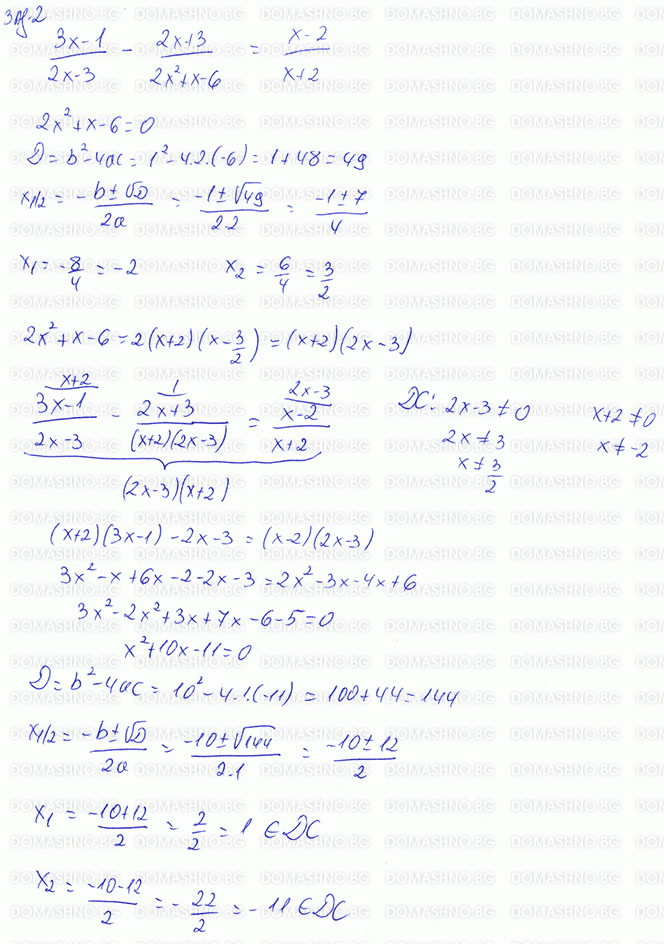 зад. 2
(3x-1)/(2x-3) - (2x+3)/(2x²+x-6) = (x-2)/(x+2)
2x²+x-6=0
D=b²-4ac=1²-4.2.(-6)=1+48=49
x1/2 = (-b±√D)/(2a) = (-1±√49)/(2.2) = (-1±7)/4
x₁=-8/4=-2 x₂=6/4=3/2
2x²+x-6=2(x+2)(x-3/2)=(x+2)(2x-3)
x+2 1 2x-3
(3x-1)/(2x-3) - (2x+3)/((x+2)(2x-3)) = (x-2)/(x+2) DC: 2x-3≠0 x+2≠0
2x≠3 x≠-2
x≠3/2
(2x-3)(x+2)
(x+2)(3x-1)-2x-3=(x-2)(2x-3)
3x²-x+6x-2-2x-3=2x²-3x-4x+6
3x²-2x²+3x+7x-6-5=0
x²+10x-11=0
D=b²-4ac=10²-4.1.(-11)=100+44=144
x1/2=(-b±√D)/(2a)=(-10±√144)/(2.1)=(-10±12)/2
x₁=(-10+12)/2=2/2=1∈DC
x₂=(-10-12)/2=-22/2=-11∈DC
DOMASHNO.BG